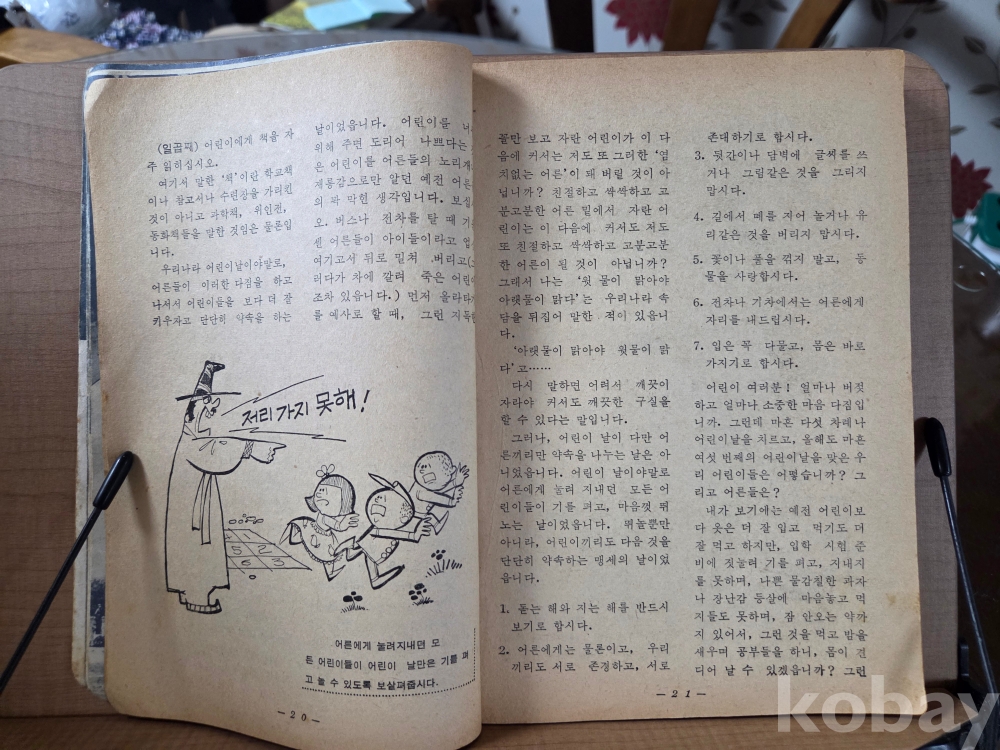 (일곱째) 어린이에게 책을 자
주 읽히십시오.
여기서 말한 '책'이란 학교책
이나 참고서나 수련장을 가리킨
것이 아니고 과학책, 위인전,
동화책들을 말한 것임은 물론입
니다.
우리나라 어린이날이야말로,
어른들이 이러한 다짐을 하고
나서서 어린이들을 보다 더 잘
키우자고 단단히 약속을 하는
날이었읍니다. 어린이를 너
위해 주면 도리어 나쁘다는
은 어린이를 어른들의 노리개
제롱감으로만 알던 예전 어른
의 꽉 막힌 생각입니다. 보십
오. 버스나 전차를 탈 때 기
센 어른들이 아이들이라고 업
여기고서 뒤로 밀쳐 버리고(
러다가 차에 갈려 죽은 어린
조차 있읍니다.) 먼저 올라타
를 예사로 할 때, 그런 지독
저리 가지 못해!
5 2
6 3
어른에게 눌려지내던 모
든 어린이들이 어린이 날만은 기를 펴
고 놀 수 있도록 보살펴줍시다.
— 2 0 —
꼴만 보고 자란 어린이가 이 다
음에 커서는 저도 또 그러한 '염
치없는 어른'이 돼 버릴 것이 아
닙니까? 친절하고 싹싹하고 고
분고분한 어른 밑에서 자란 어
린이는 이 다음에 커서도 저도
또 친절하고 싹싹하고 고분고분
한 어른이 될 것이 아닙니까?
그래서 나는 '윗 물이 맑아야
아랫물이 맑다'는 우리나라 속
담을 뒤집어 말한 적이 있읍니
다.
'아랫물이 맑아야 윗물이 맑
다'고……
다시 말하면 어려서 깨끗이
자라야 커서도 깨끗한 구실을
할 수 있다는 말입니다.
그러나, 어린이 날이 다만 어
른끼리만 약속을 나누는 날은 아
니었읍니다. 어린이 날이야말로
어른에게 눌려 지내던 모든 어
린이들이 기를 펴고, 마음껏 뛰
노는 날이었읍니다. 뛰놀뿐만
아니라, 어린이끼리도 다음 것을
단단히 약속하는 맹세의 날이었
읍니다.
1. 돋는 해와 지는 해를 반드시
보기로 합시다.
2. 어른에게는 물론이고, 우리
끼리도 서로 존경하고, 서로
존대하기로 합시다.
3. 뒷간이나 담벽에 글씨를 쓰
거나 그림같은 것을 그리지
말시다.
4. 길에서 떼를 지어 놀거나 유
리같은 것을 버리지 맙시다.
5. 꽃이나 풀을 꺾지 말고, 동
물을 사랑합시다.
6. 전차나 기차에서는 어른에게
자리를 내드립시다.
7. 입은 꼭 다물고, 몸은 바로
가지기로 합시다.
어린이 여러분! 얼마나 버젓
하고 얼마나 소중한 마음 다짐입
니까. 그런데 마흔 다섯 차례나
어린이날을 치르고, 올해도 마흔
여섯 번째의 어린이날을 맞은 우
리 어린이들은 어떻습니까? 그
리고 어른들은?
내가 보기에는 예전 어린이보
다 옷은 더 잘 입고 먹기도 더
잘 먹고 하지만, 입학 시험 준
비에 짓눌려 기를 펴고, 지내지
를 못하며, 나쁜 물감칠한 과자
나 장난감 등살에 마음놓고 먹
지들도 못하며, 잠 안오는 약까
지 있어서, 그런 것을 먹고 밤을
새우며 공부들을 하니, 몸이 견
디어 날 수 있겠읍니까? 그런
— 2 1 —
kobay